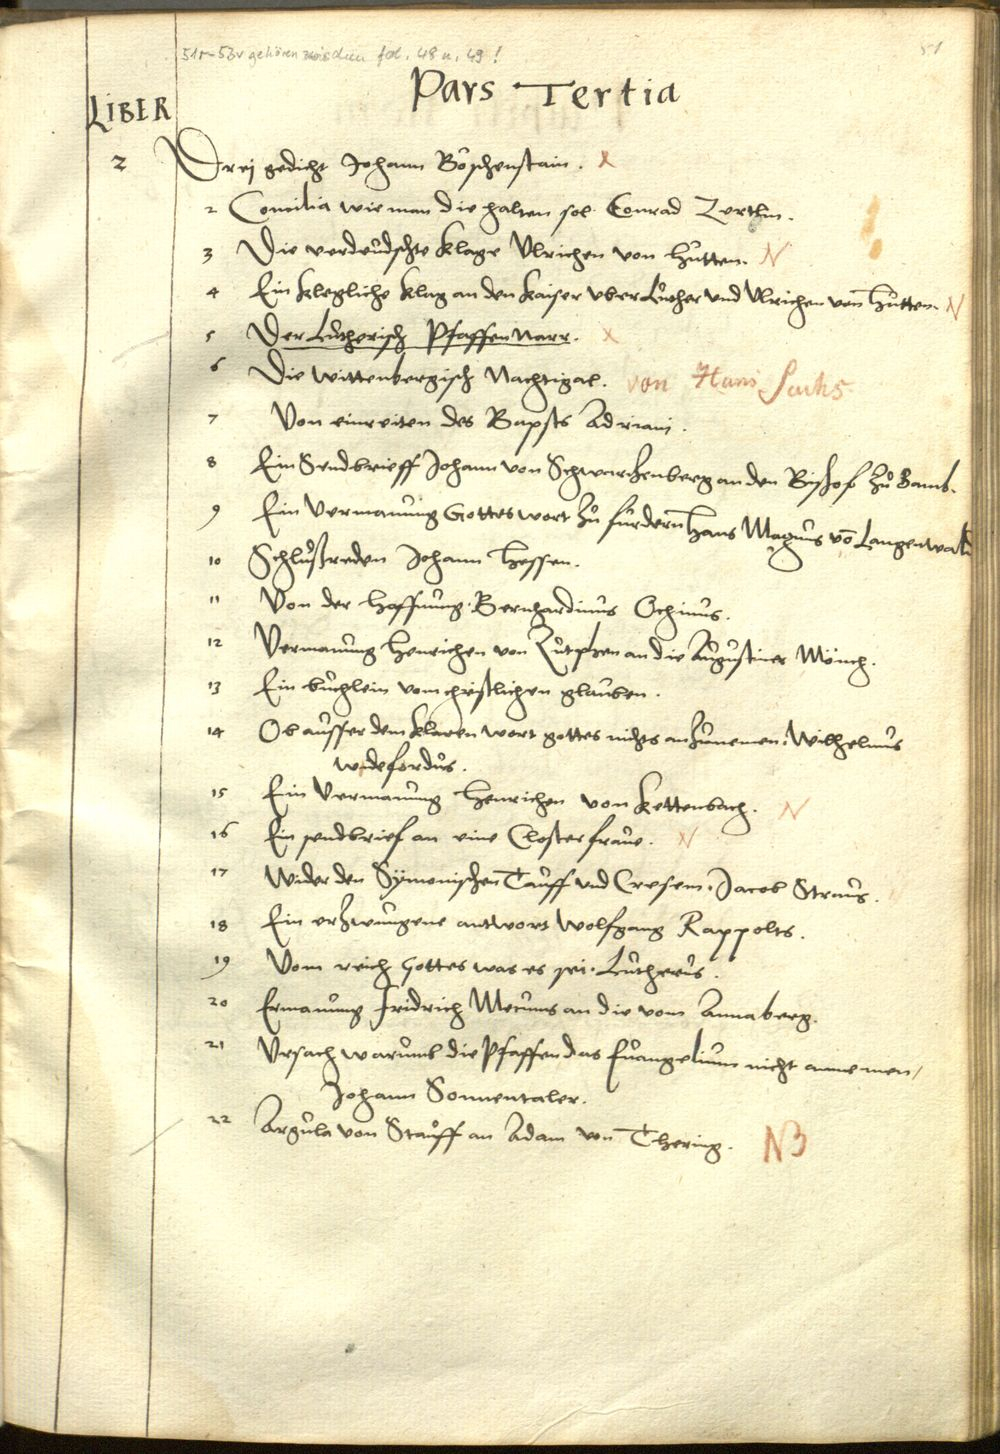 51r-53v gehören zwischen fol. 48 u. 49!
51
Pars Tertia
LIBER
2 Drej gedicht Johann Böschenstain. x
2 Concilia wie man die halten sol. Conrad Zertlin.
3 Die verdeudschte klage Ulrichen von Hutten. N
4 Ein klegliche klag an den kaiser vber Luther vnd Vlrichen von Hutten. N
5 Der Lutherisch Pfaffen Narr. x
6 Die Wittenbergisch Nachtigal. von Hans Sachs
7 Von einreiten des Bapsts Adriani.
8 Ein Sendbrieff Johann von Schwarzenberg an den Bischof zů Bamb.
9 Ein Vermanung Gottes wort zů fürdern Hans Magnus võ Langenwald
10 Schlußreden Johann Hessen.
11 Von der Hoffnung. Bernhardinus Ochinus.
12 Vermanung Henrichen von Zutphen an die Augustiner Mönch.
13 Ein buchlein vom christlichen glauben.
14 Ob ausser dem klaren wort gottes nichts anzunemen. Wilhelmus
widefordus.
15 Ein Vermanung Henrichen von Kettenbach. N
16 Ein sendbrief an eine Closterfraue. N
17 Wider den Symonischen Tauff vnd Cresem. Jacob Straus.
18 Ein erzwungene antwort Wolfgang Rappolts.
19 Vom reich Gottes was es sei. Lutherus.
20 Ermanung Fridrich Mecums an die vom Annaberg.
21 Vrsach warumb die Pfaffen das Euangelium nicht annemen/
Johann Sonnentaler.
22 Argula von Stauff an Adam von Thering. NB